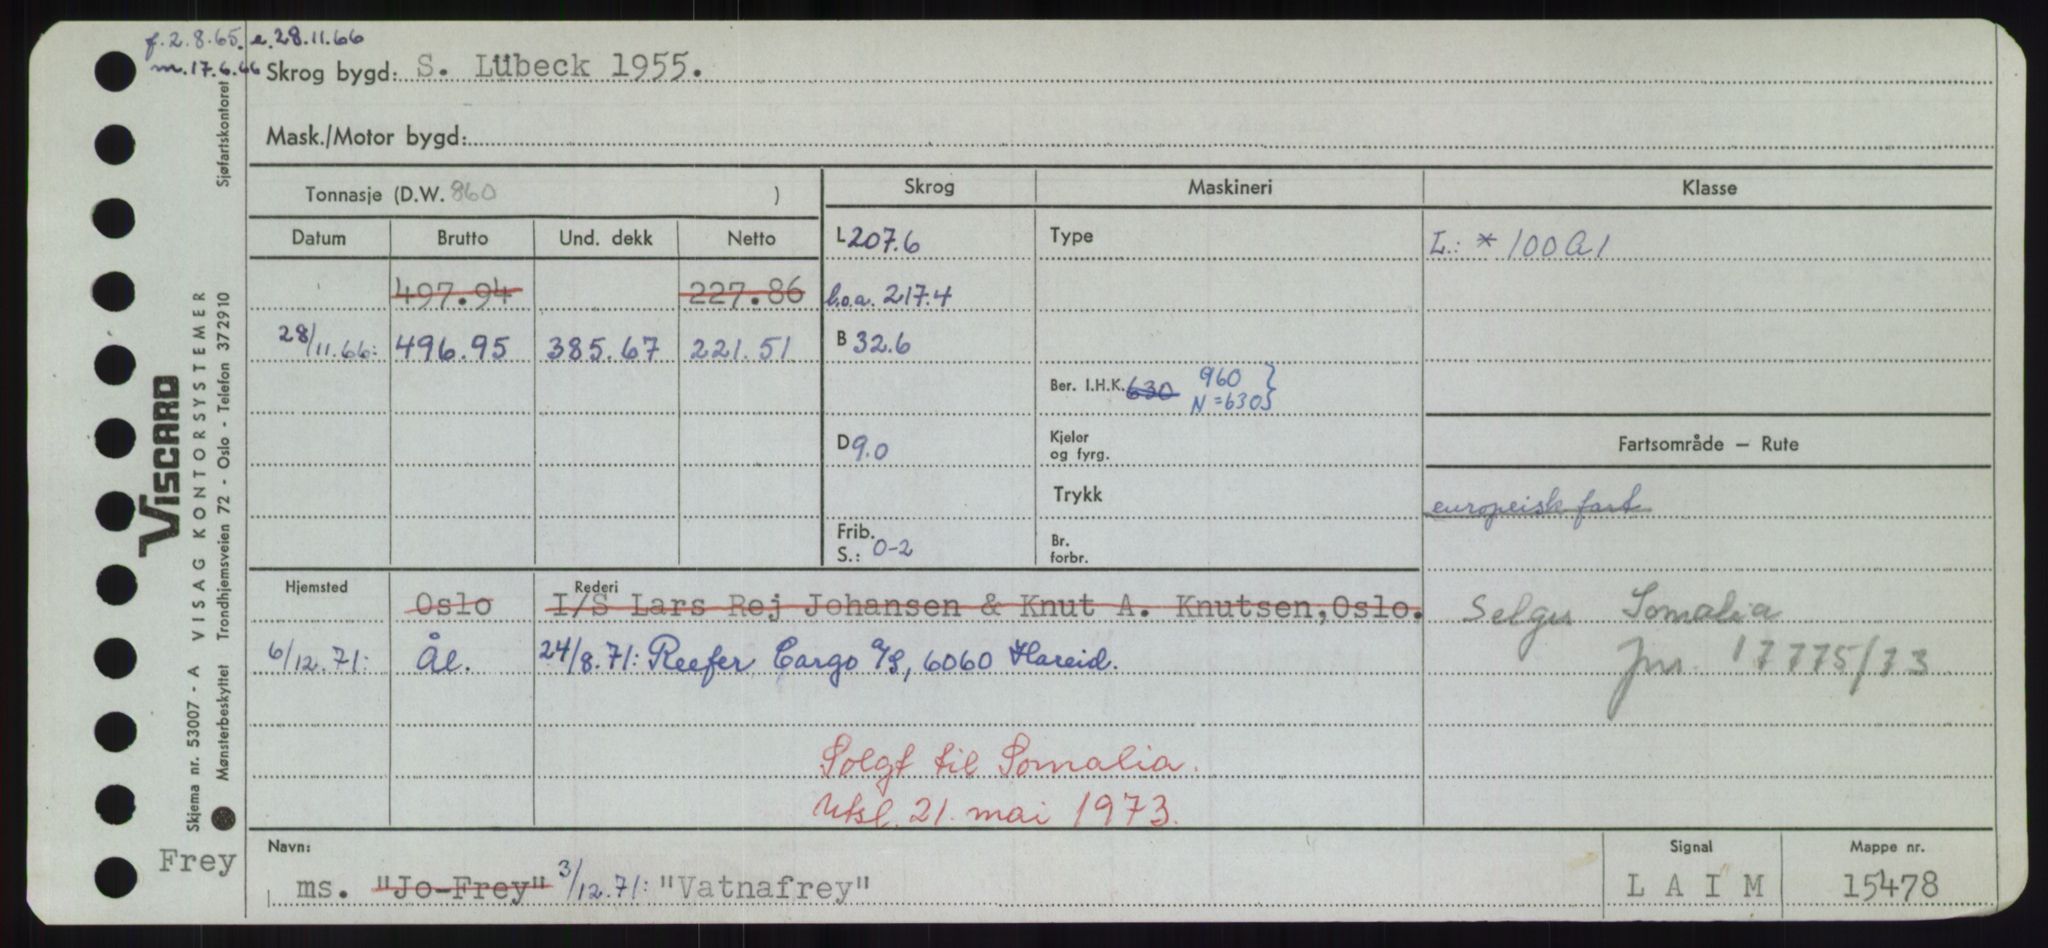 f. 2.8.65. e. 28.11.66
m. 17.6.66 Skrog bygd: S. Lübeck 1955.
Mask./Motor bygd:
Sjøfartskontoret
Tonnasje (D.W. 860 )
Skrog
Maskineri
Klasse
Datum
Brutto
Und. dekk
Netto
L 207.6
Type
L.: * 100 A 1
497.94
227.86
l.o.a. 217.4
28/11.66: 496.95 385.67 221.51
B 32.6
Ber. I.H.K. 630 960 }
N = 630 }
D 9.0
Kjeler
og fyrg.
Fartsområde — Rute
Trykk
europeisk fart
Frib.
S.: 0-2
Br.
forbr.
Hjemsted
Rederi
Oslo I/S Lars Rej Johansen & Knut A. Knutsen, Oslo.
Selges Somalia
6/12.71: Ål. 24/8.71: Reefer Cargo A/S, 6060 Hareid.
Jnr. 17775/73
Solgt til Somalia.
Utsl. 21. mai 1973.
Navn:
Signal
Mappe nr.
Frey
ms. "Jo-Frey" 3/12.71: "Vatnafrey"
L A I M
15478
VISCARD
Skjema nr. 53007 - A VISAG KONTORSYSTEMER
Mønsterbeskyttet Trondhjemsveien 72 - Oslo - Telefon 372910